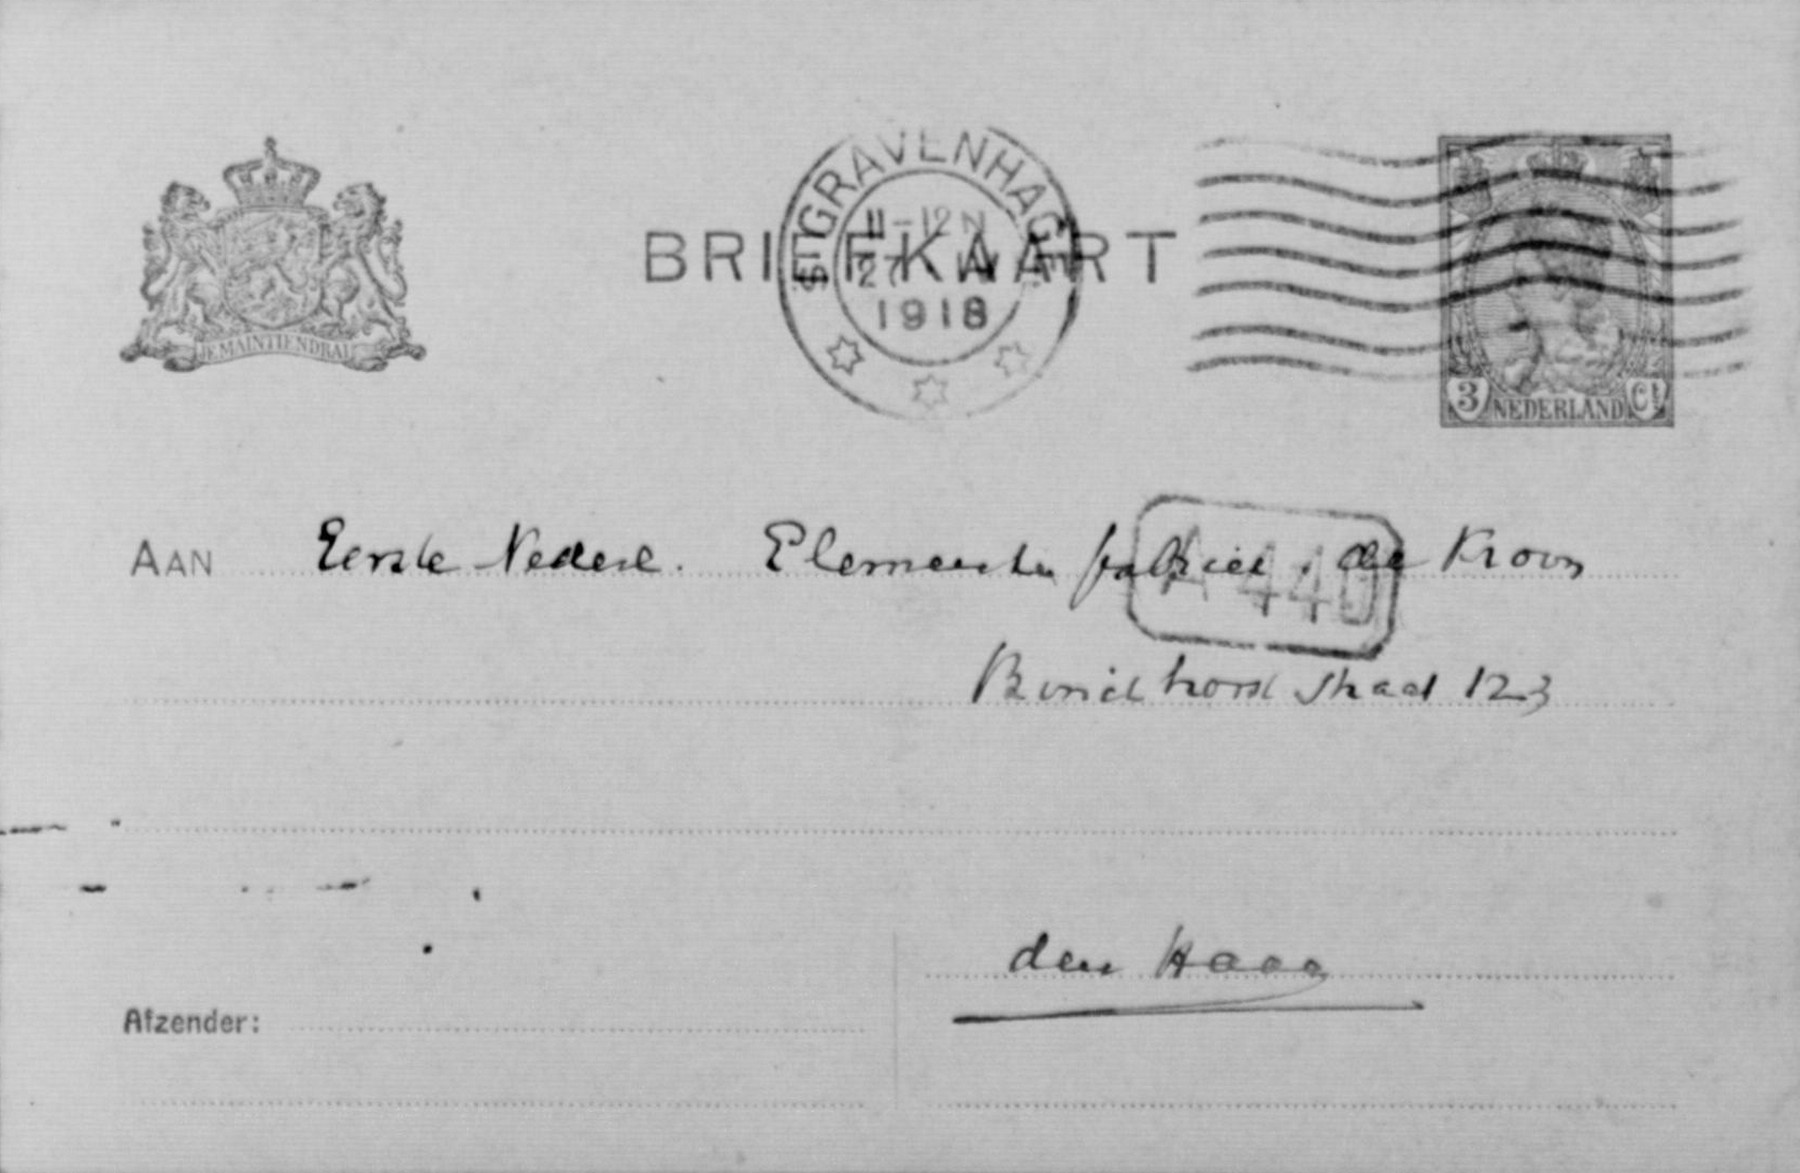 JE MAINTIENDRAI
'S-GRAVENHAGE
11-12 N
27
1918
BRIEFKAART
3 NEDERLAND Ct
AAN Eerste Nederl. Elementen fabriek. de Kroon
A 440
straat 123
den Haag
Afzender: